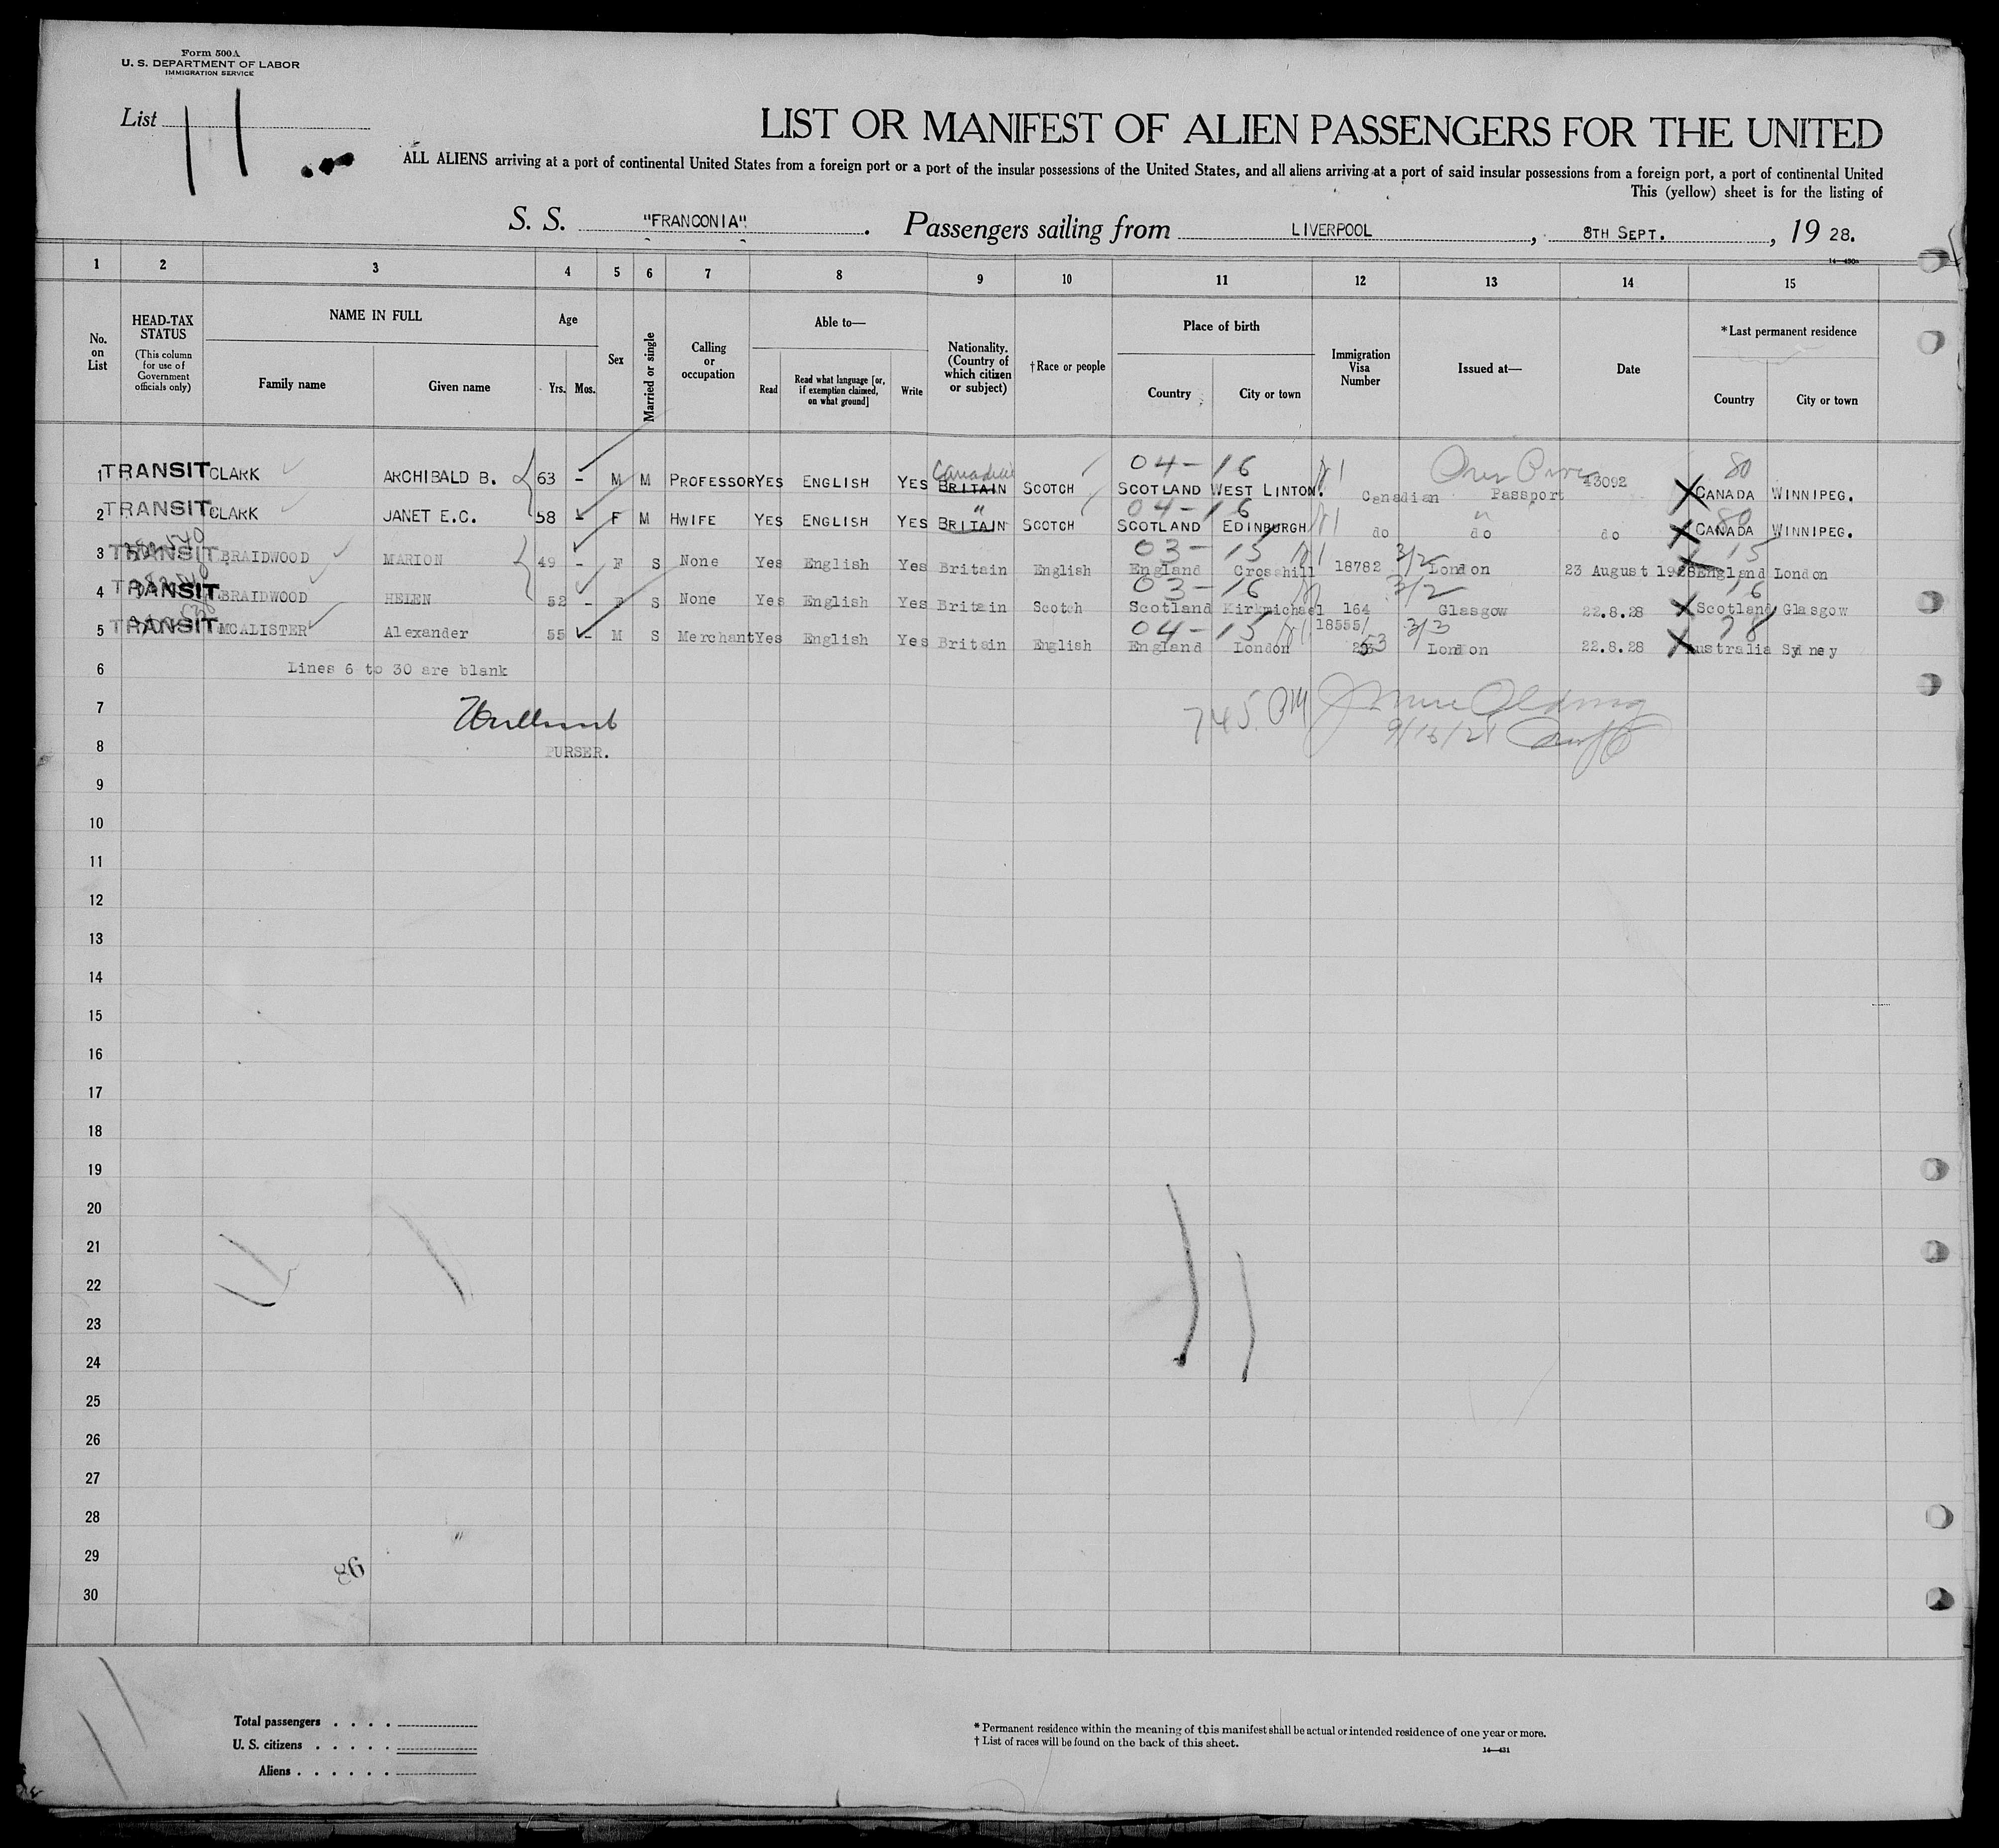 Form 500A
U. S. DEPARTMENT OF LABOR
IMMIGRATION SERVICE
List 11
LIST OR MANIFEST OF ALIEN PASSENGERS FOR THE UNITED
ALL ALIENS arriving at a port of continental United States from a foreign port or a port of the insular possessions of the United States, and all aliens arriving at a port of said insular possessions from a foreign port, a port of continental United
This (yellow) sheet is for the listing of
S. S. "FRANCONIA". Passengers sailing from LIVERPOOL, 8TH SEPT., 19 28.
1 2 3 4 5 6 7 8 9 10 11 12 13 14 15
No. on List
HEAD-TAX STATUS (This column for use of Government officials only)
NAME IN FULL
Family name Given name
Age
Yrs. Mos.
Sex
Married or single
Calling or occupation
Able to—
Read Read what language [or, if exemption claimed, on what ground] Write
Nationality. (Country of which citizen or subject)
†Race or people
Place of birth
Country City or town
Immigration Visa Number
Issued at—
Date
*Last permanent residence
Country City or town
04-16 80
1 TRANSIT CLARK ARCHIBALD B. 63 - M M PROFESSOR YES ENGLISH YES Canadian BRITAIN SCOTCH SCOTLAND WEST LINTON. Canadian Passport 43092 CANADA WINNIPEG.
04-16 80
2 TRANSIT CLARK JANET E.C. 58 - F M HWIFE YES ENGLISH YES " BRITAIN SCOTCH SCOTLAND EDINBURGH do do do CANADA WINNIPEG.
03-15 3/2 15
3 TRANSIT BRAIDWOOD MARION 49 - F S None Yes English Yes Britain English England Crosshill 18782 London 23 August 1928 England London
03-16 3/2 16
4 TRANSIT BRAIDWOOD HELEN 52 - F S None Yes English Yes Britain Scotch Scotland Kirkmichael 164 Glasgow 22.8.28 Scotland Glasgow
04-15 18555/ 3/3 78
5 TRANSIT MCALISTER Alexander 55 - M S Merchant Yes English Yes Britain English England London London 22.8.28 Australia Sydney
6 Lines 6 to 30 are blank
7 745 PM
8 PURSER.
9
10
11
12
13
14
15
16
17
18
19
20
21
22
23
24
25
26
27
28
29
30
86
Total passengers . . . .
U. S. citizens . . . . .
Aliens . . . . . .
* Permanent residence within the meaning of this manifest shall be actual or intended residence of one year or more.
† List of races will be found on the back of this sheet.
14—431